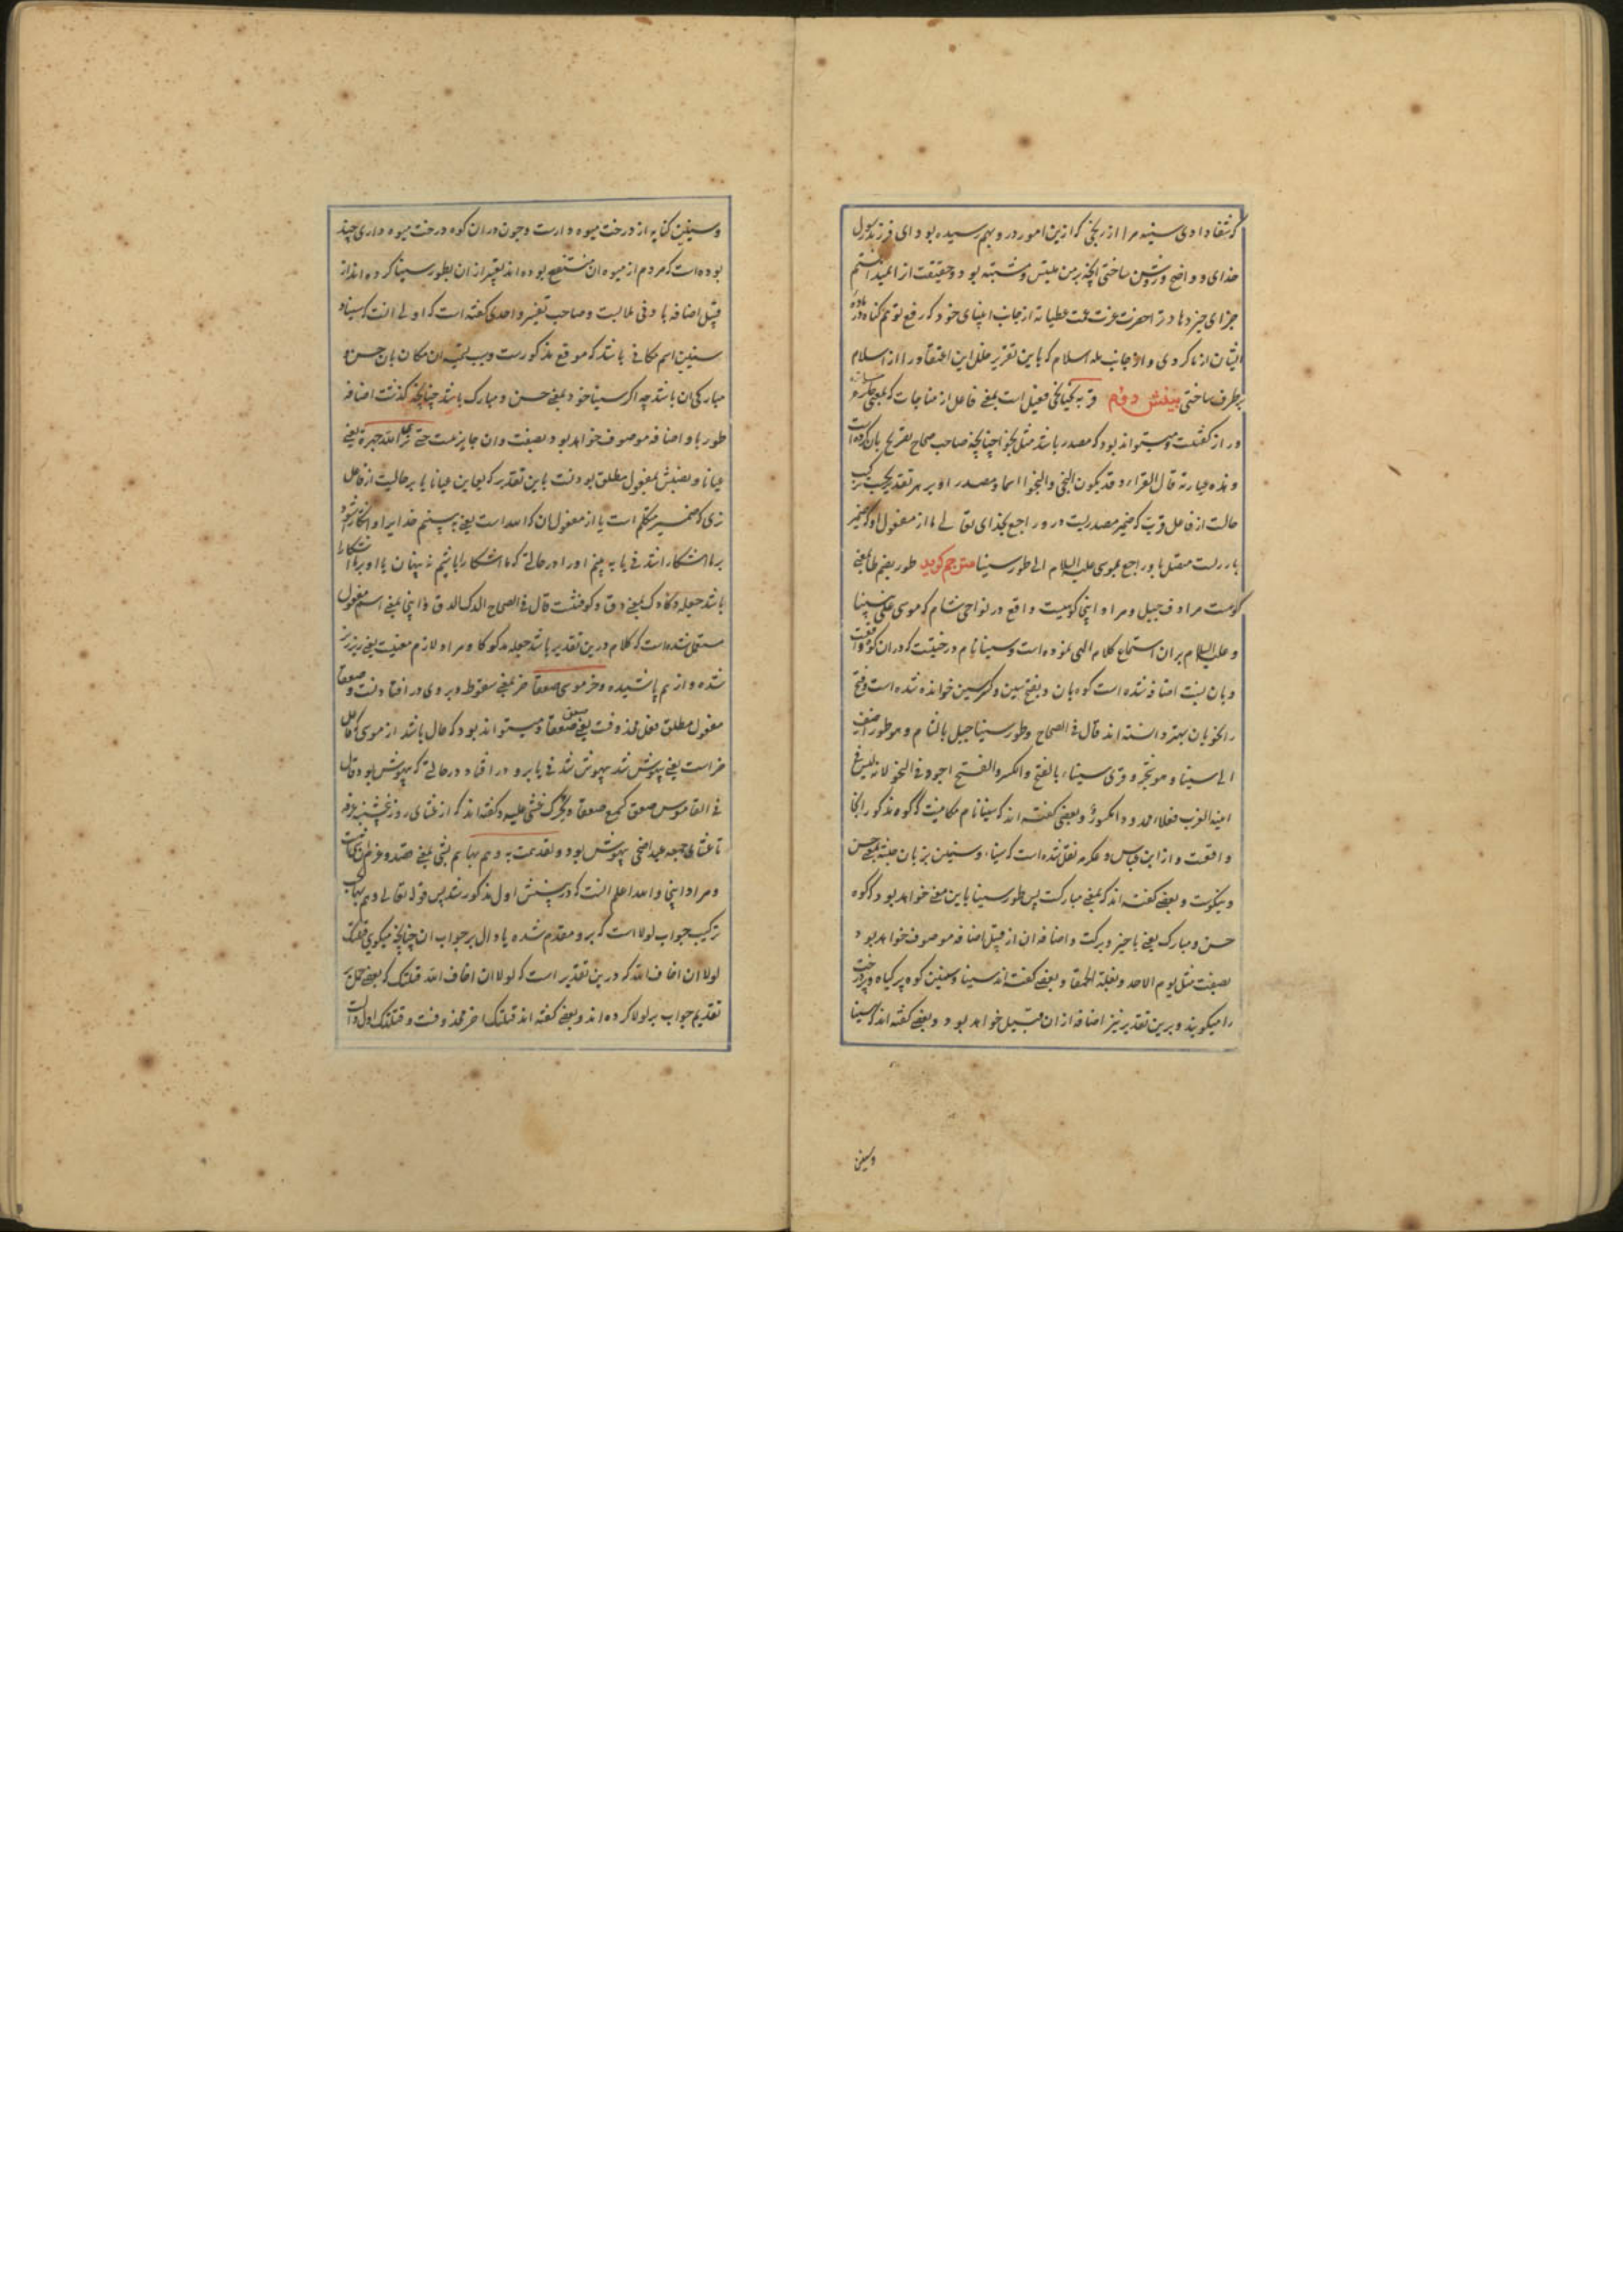 که شفا دادی سینه مرا از رنجی که ازین امور در و بهم رسیده بود ای فرزند رسول
خدای و واضح و روشن ساختی آنچه بر من ملتبس و مشتبه بود و حقیقت از انمیدانستم
جزای خیر دهاد ترا حضرت عزت عمت عطیاته از جانب انبیای خود که رفع توهم گناه در ماده
ایشان از ما کردی و از جانب مله اسلام که باین تقریر خلل این اعتقاد را از اسلام
بر طرف ساختی بینش دوم قربه نجیا نجی فعیل است بمعنی فاعل از مناجات که بمعنی
و راز گفتنست و میتواند بود که مصدر باشد مثل نجوا چنانچه صاحب صحاح تصریح بان کرده است
و هذه عبارته قال الفراء و قد یکون النجی و النجوا اسما و مصدرا و بر هر تقدیر بحسب ترکیب
حالست از فاعل قرب که ضمیر مصدریست در و راجع بخدای تعالی یا از مفعول او که ضمیر
بارزست متصل باو راجع بموسی علیه السلام الی طور سینا مترجم گوید طور بضم طا بمعنی
کوهست مرادف جبل و مراد اینجا کوهیست واقع در نواحی شام که موسی علی نبینا
و علیه السلام بر آن استماع کلام الهی نموده است و سینا نام درختیست که در ان کوه واقعست
و بان نسبت اضافه شده است کوه بان و بفتح سین و کسر سین خوانده شده است و فتح
را نحویان بهتر دانسته اند قال فی الصحاح و طور سینا جبل بالشام و هو طور اضیف
الی سینا و هو شجر و قری سیناء بالفتح و الکسر و الفتح اجود فی النحو لانه لیس فی
ابنیه العرب فعلاء ممدود مکسور و بعضی گفته اند که سینا نام مکانیست که کوه مذکور آنجا
واقعست و از ابن عباس و عکرمه نقل شده است که سینا و سینین بزبان حبشه بمعنی حسن
و نیکوست و بعضی گفته اند که بمعنی مبارکست پس طور سینا باین معنی خواهد بود که کوه
حسن و مبارک یعنی با خیر و برکت و اضافه ان از قبیل اضافه موصوف خواهد بود
بصفت مثل یوم الاحد و بقلة الحمقا و بعضی گفته اند سینا و سینین کوه پر گیاه و پر درخت
را میگویند و برین تقدیر نیز اضافه از ان قبیل خواهد بود و بعضی گفته اند که سینا
وسینین
وسینین کنایه از درخت میوه دارست و چون در ان کوه درخت میوه داری چند
بوده است که مردم از میوه ان منتفع بوده اند تعبیر از ان بطور سینا کرده اند از
قبیل اضافه بادنی ملابست و صاحب تفسیر واحدی گفته است که اولی انست که سینا و
سینین اسم مکانی باشد که موقع مذکورست و سبب تسمیه ان مکان بان حسن و
مبارکی ان باشد چه اگر سینا خود بمعنی حسن و مبارک باشد چنانچه گذشت اضافه
طور باو اضافه موصوف خواهد بود بصفت و ان جایز نیست حتی نری الله جهرة یعنی
عیانا و نصبش بمفعول مطلق بودنست باین تقدیر که یعاین عیانا یا بر حالیت از فاعل
نری که ضمیر متکلم است یا از مفعول ان که الله است یعنی به بینیم خدایرا و آشکار شود
بر ما آشکار شدنی یا به بینیم او را در حالتی که ما آشکارا باشیم نه پنهان یا او بر ما آشکارا
باشد جعله دکا دک بمعنی دق و کوفتنست قال فی الصحاح الدک الدق و اینجا بمعنی اسم مفعول
مستعمل شده است که کلام درین تقدیر باشد جعله مدکوکا و مراد لازم معنیست یعنی ریز ریز
شده و از هم پاشیده و خر موسی صعقا خر بمعنی سقوط و بر روی در افتادنست و صعقا
مفعول مطلق فعل محذوفست یعنی صعق صعقا و میتواند بود که حال باشد از موسی که فاعل
خر است یعنی بیهوش شد بیهوش شدنی یا برو در افتاد در حالتی که بیهوش بود قال
فی القاموس صعق کسمع صعقا و یحرک غشی علیه و گفته اند که از عشای روز پنجشنبه عرفه
تا عشای جمعه عید اضحی بیهوش بود و لقد همت به و هم بها هم بشی بمعنی قصد و عزم ان کار است
و مراد اینجا و الله اعلم انست که در بینش اول مذکور شد پس قوله تعالی و هم بها بحسب
ترکیب جواب لولا است که برو مقدم شده یا دال بر جواب ان چنانچه میگویی قتلتک
لولا ان اخاف الله که درین تقدیر است که لولا ان اخاف الله قتلتک که بعضی حمل بر
تقدیم جواب بر لولا کرده اند و بعضی گفته اند قتلتک اخر محذوفست و قتلتک اول دال است